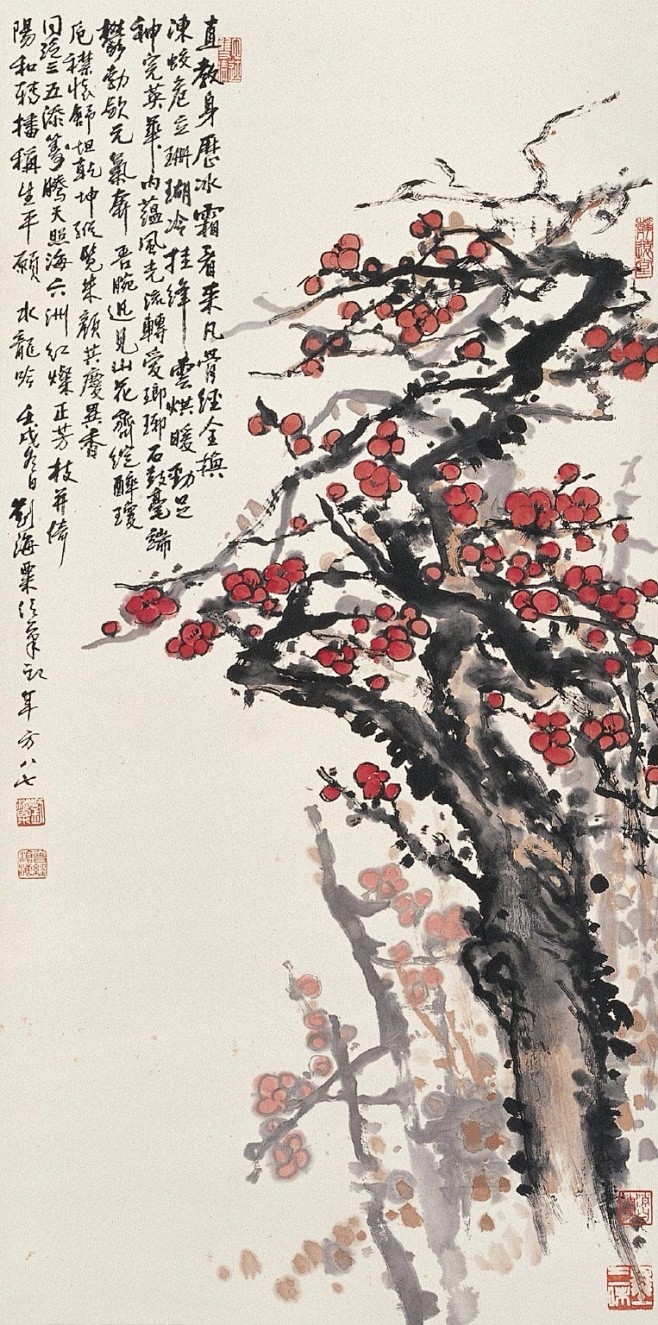 直教身歷冰霜看來凡骨經全換
凍蛟危立珊瑚冷挂絳雲烘暖勁足
神完英華內蘊風光流轉愛瑯琊石鼓毫端
鬱勃歘元氣奔吾腕迎見山花齊綻醉瓊
卮襟懷舒坦乾坤縱覽朱顏共慶異香
同遠三五添籌騰天照海六洲紅燦正芳枝并倚
陽和轉播稱生平願 水龍吟 壬戌冬日 劉海粟 筆記年方八七